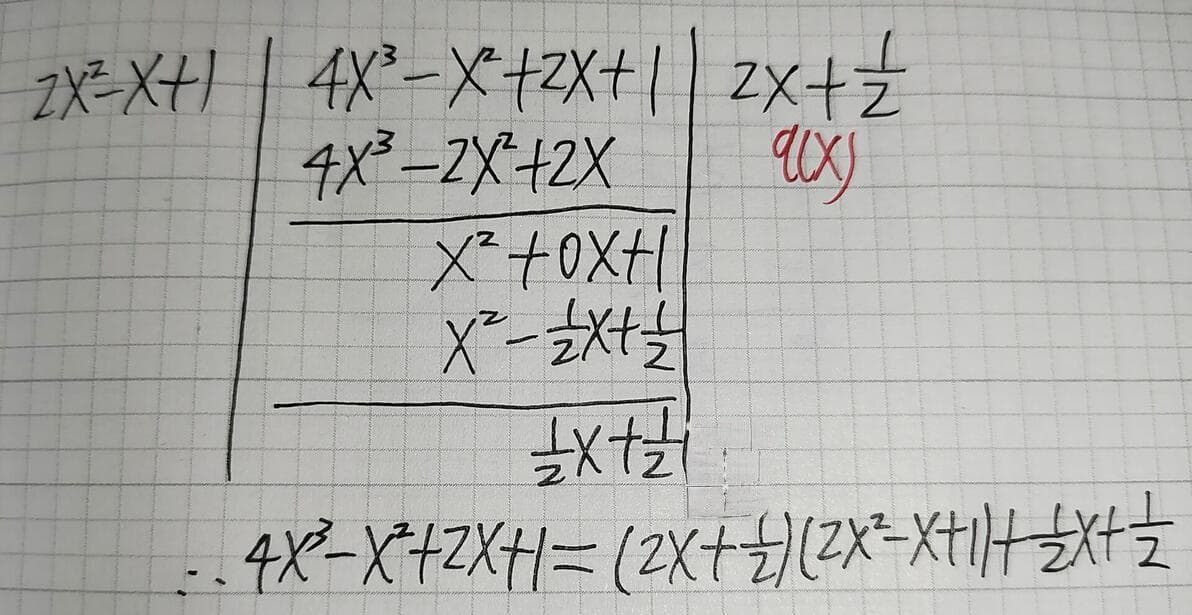 2x²-x+1 | 4x³-x²+2x+1 | 2x+1/2
4x³-2x²+2x q(x)
x²+0x+1
x²-1/2x+1/2
1/2x+1/2
∴ 4x³-x²+2x+1=(2x+1/2)(2x²-x+1)+1/2x+1/2